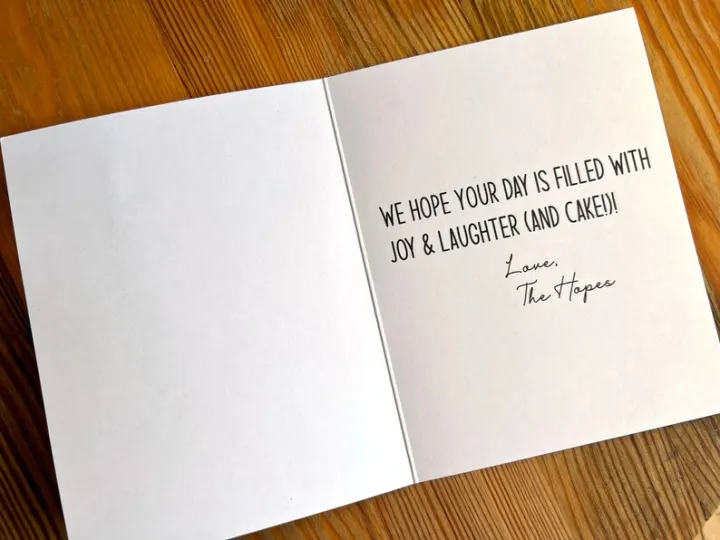 WE HOPE YOUR DAY IS FILLED WITH
JOY & LAUGHTER (AND CAKE!)!
Love,
The Hopes